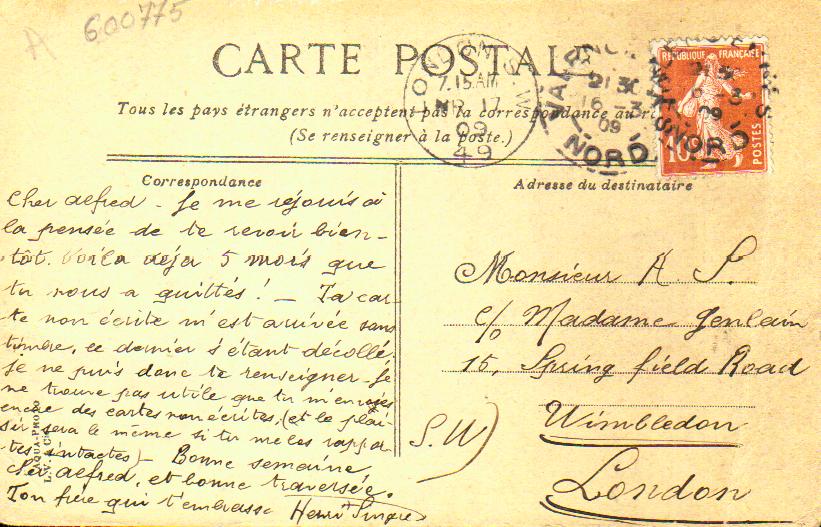 A 600775
CARTE POSTALE
Tous les pays étrangers n'acceptent pas la correspondance au
(Se renseigner à la poste.)
LONDON. S.W
7.15 AM
MR 17
09
49
21 30
16 - 3
09
NORD
REPUBLIQUE FRANÇAISE
10
POSTES
21 30
- 3
09
NORD
Correspondance
Cher Alfred - Je me réjouis à
la pensée de te revoir bien-
tôt. Voilà déja 5 mois que
tu nous a quittés ! - Ta car-
te non écrite m'est arrivée sans
timbre, ce dernier s'étant décollé.
Je ne puis donc te renseigner. Je
ne trouve pas utile que tu m'envoies
encore des cartes non écrites, (et le plai-
sir sera le même si tu me les rappor-
tes intactes) - Bonne semaine
cher Alfred, et bonne traversée.
Ton frère qui t'embrasse Henri
AQUA-PHOTO
L. V.
Adresse du destinataire
Monsieur A. S.
c/o Madame
15, Spring field Road
Wimbledon
S.W)
London